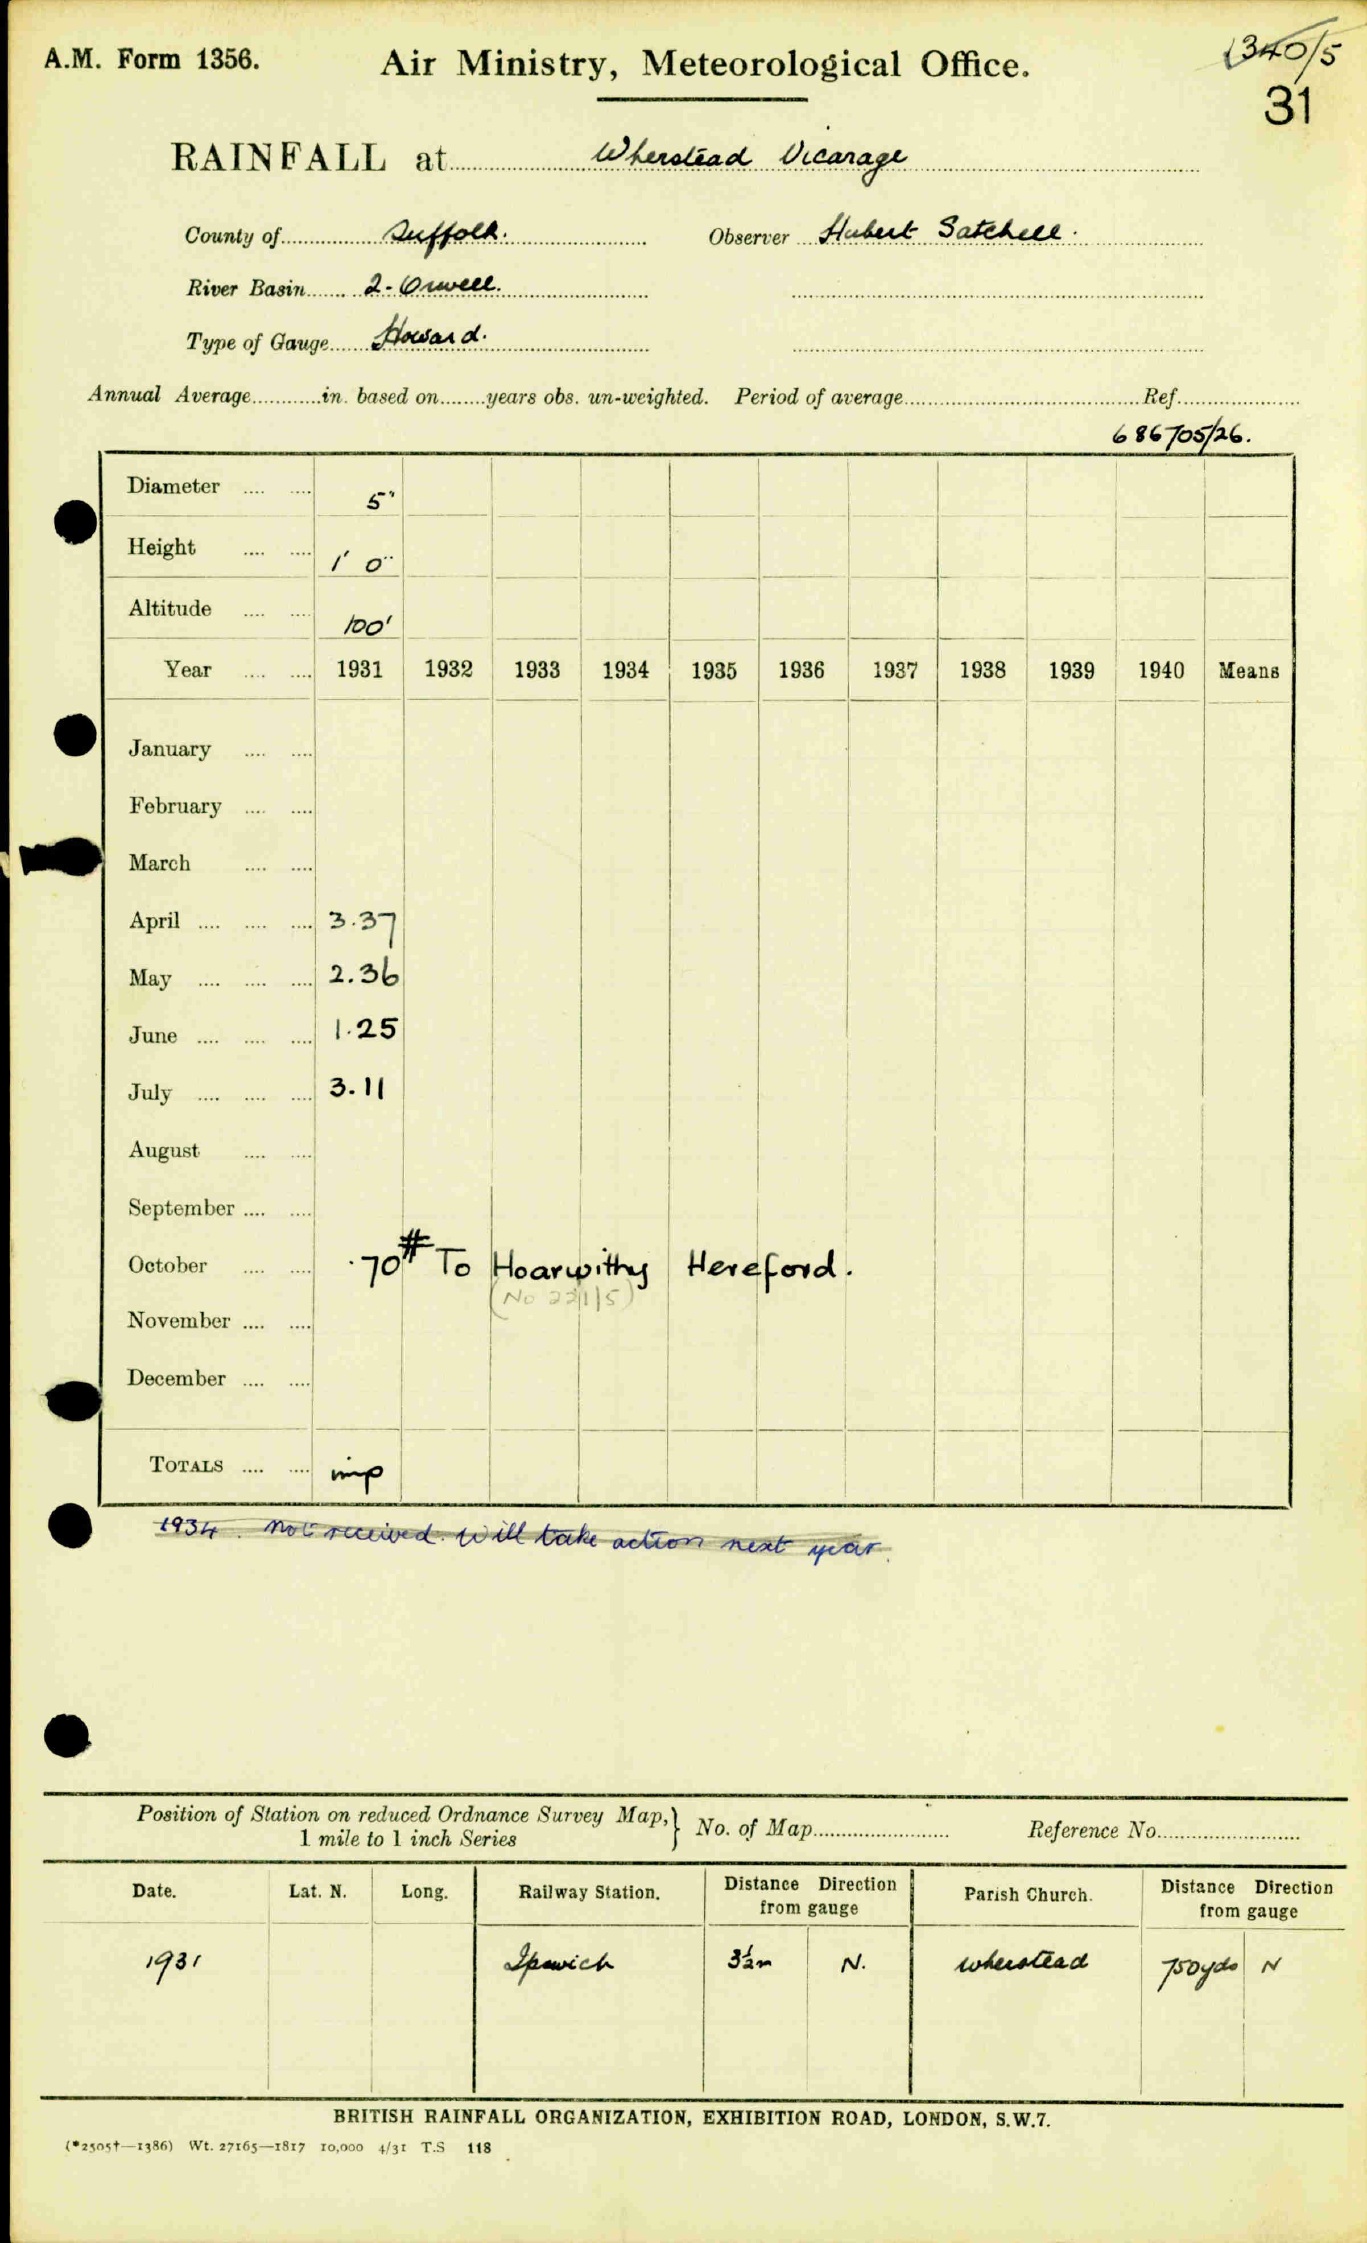 A.M. Form 1356.
Air Ministry, Meteorological Office.
340/5
31
RAINFALL at Wherstead Vicarage
County of Suffolk. Observer Hubert Satchell.
River Basin 2-Orwell.
Type of Gauge Howard.
Annual Average in. based on years obs. un-weighted. Period of average Ref.
686705/26.
Diameter 5"
Height 1' 0"
Altitude 100'
Year 1931 1932 1933 1934 1935 1936 1937 1938 1939 1940 Means
January
February
March
April 3.37
May 2.36
June 1.25
July 3.11
August
September
October .70# To Hoarwithy Hereford.
(No 221/5)
November
December
TOTALS imp
1934. Not received. Will take action next year.
Position of Station on reduced Ordnance Survey Map,} No. of Map Reference No.
1 mile to 1 inch Series
Date. Lat. N. Long. Railway Station. Distance Direction from gauge Parish Church. Distance Direction from gauge
1931 Ipswich 3½m N. Wherstead 750yds N
BRITISH RAINFALL ORGANIZATION, EXHIBITION ROAD, LONDON, S.W.7.
(*2505†—1386) Wt. 27165—1817 10,000 4/31 T.S 118